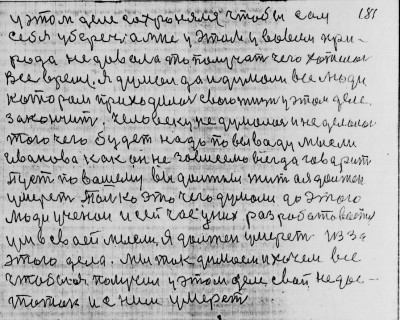 у этом деле сохроняля чтобы сам 181
себя уберечь а мне у этом у вовсем при-
рода не довала это получат чего хотелос
все время. Я думал да и думали все люди
котором приходилос свою жизн у этом деле
закончит. Человек не думолос и не делолос
того чего будет надо по выводу мысли
как он не зависело всегда говорит
пуст по вашему вы должны жит а я должен
умерет. Только это чего думоли до этого
люди ученои и сей час у них розработовоется
ум в своей мысли, я должен умерет из за
этого дела. Мы ток думоем и хочем все
чтобы я получил у этом деле свой недос-
таток и с ним умерет